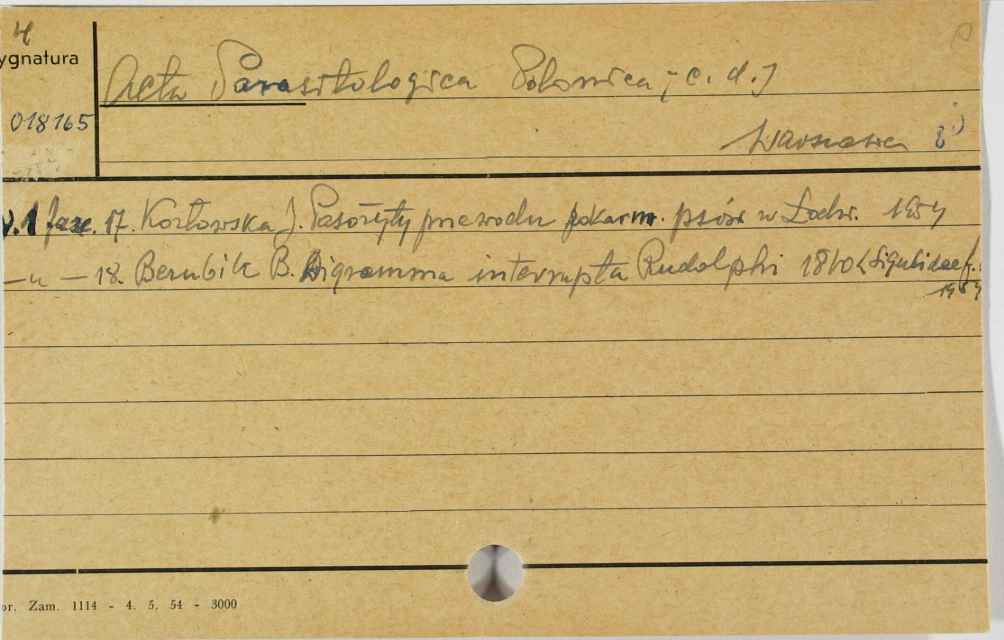 4
ygnatura
Acta Parasitologica Polonica / c. d. /
018165
Warszawa 8°)
V. 1 fasc. 17. Kozłowska J. Pasożyty przewodu pokarm. psów w Łodzi. 1954
—„— 18. Berubik B. Digramma interrupta Rudolphi 1810 (Ligulidae
1954
or. Zam. 1114 - 4. 5. 54 - 3000